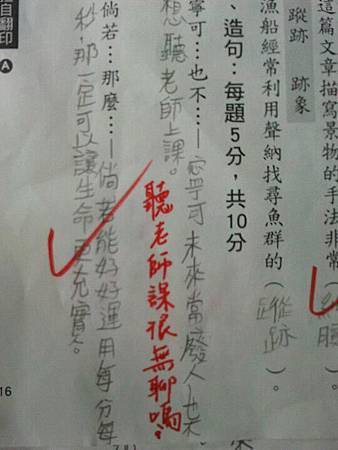 這篇文章描寫景物的手法非常（細膩）。
蹤跡 跡象
漁船經常利用聲納找尋魚群的（蹤跡）。
、造句：每題5分，共10分
寧可…也不…—寧可未來當廢人也不
想聽老師上課。
聽老師課很無聊嗎？
倘若…那麼…—倘若能好好運用每分每
秒，那一定可以讓生命更充實。
自翻印
A
16